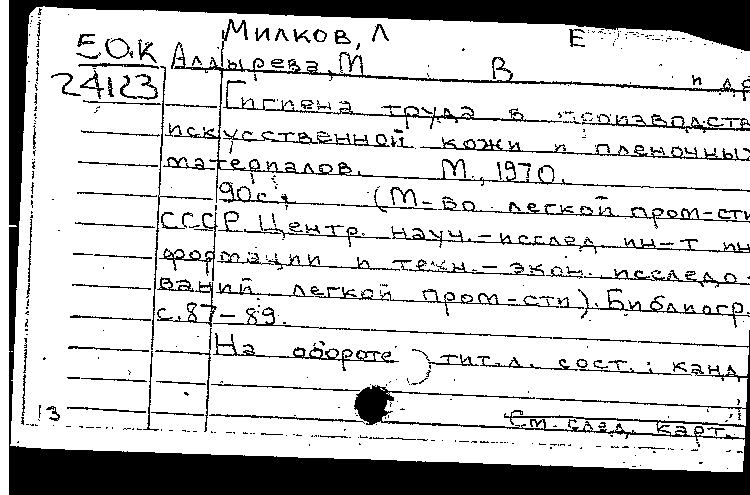 Милков, Л Е
ЕО.К Алдырева, М В и др
24123 Гигиена труда в производств
искусственной кожи и пленочных
материалов. М., 1970.
90с. (М-во легкой пром-сти
СССР. Центр. науч.-исслед. ин-т ин
формации и техн.-экон. исследо-
ваний легкой пром-сти). Библиогр.
с. 87-89.
На обороте тит. л. сост.: канд
См. след. карт.
13